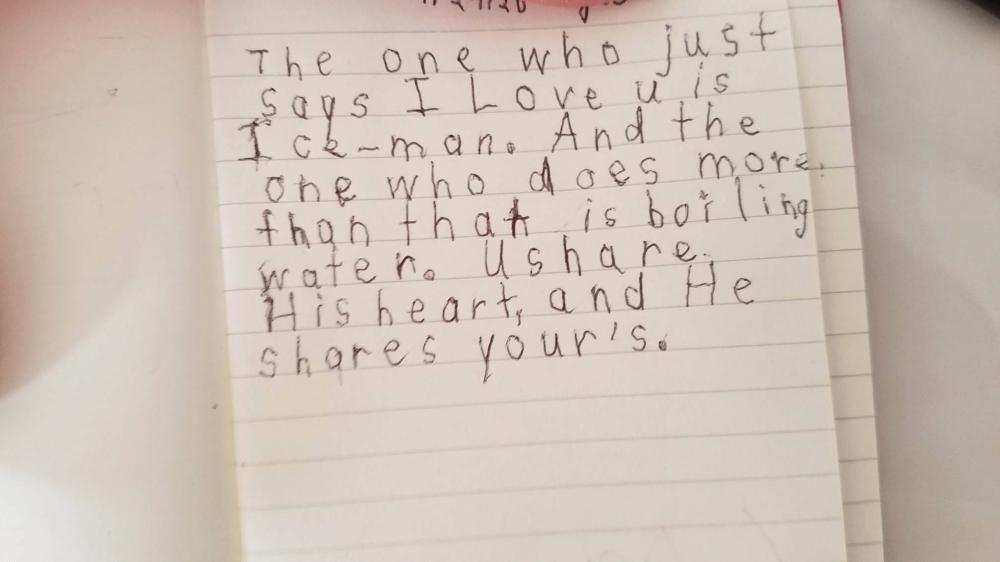 The one who just
says I Love u is
Ice-man. And the
one who does more.
than that is boiling
water. U share.
His heart, and He
shares your's.